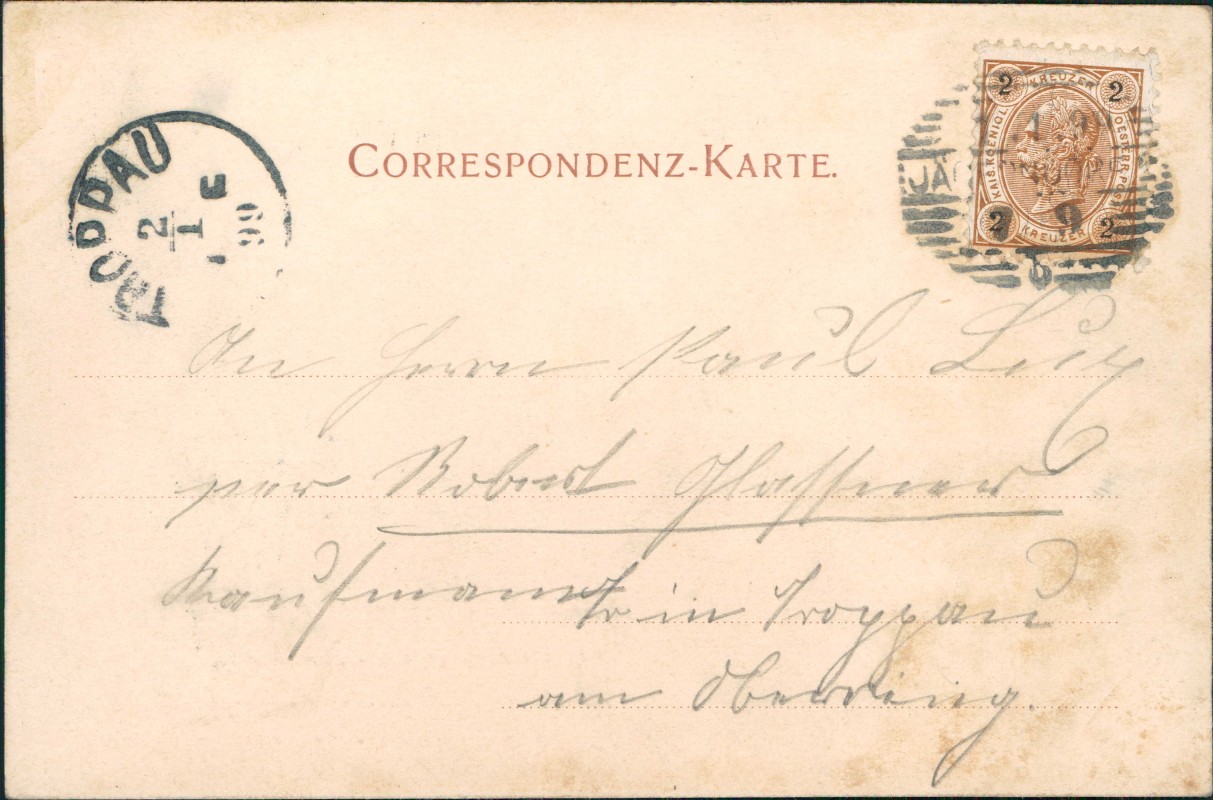 CORRESPONDENZ-KARTE.
TROPPAU
2
1
99
2 KREUZER 2
KAIS. KOENIGL. OESTERR. POST
2 KREUZER 2
JÄ
9
b
An Herrn Paul
per Robert Glassner
Kaufmann in Troppau
am Oberring.